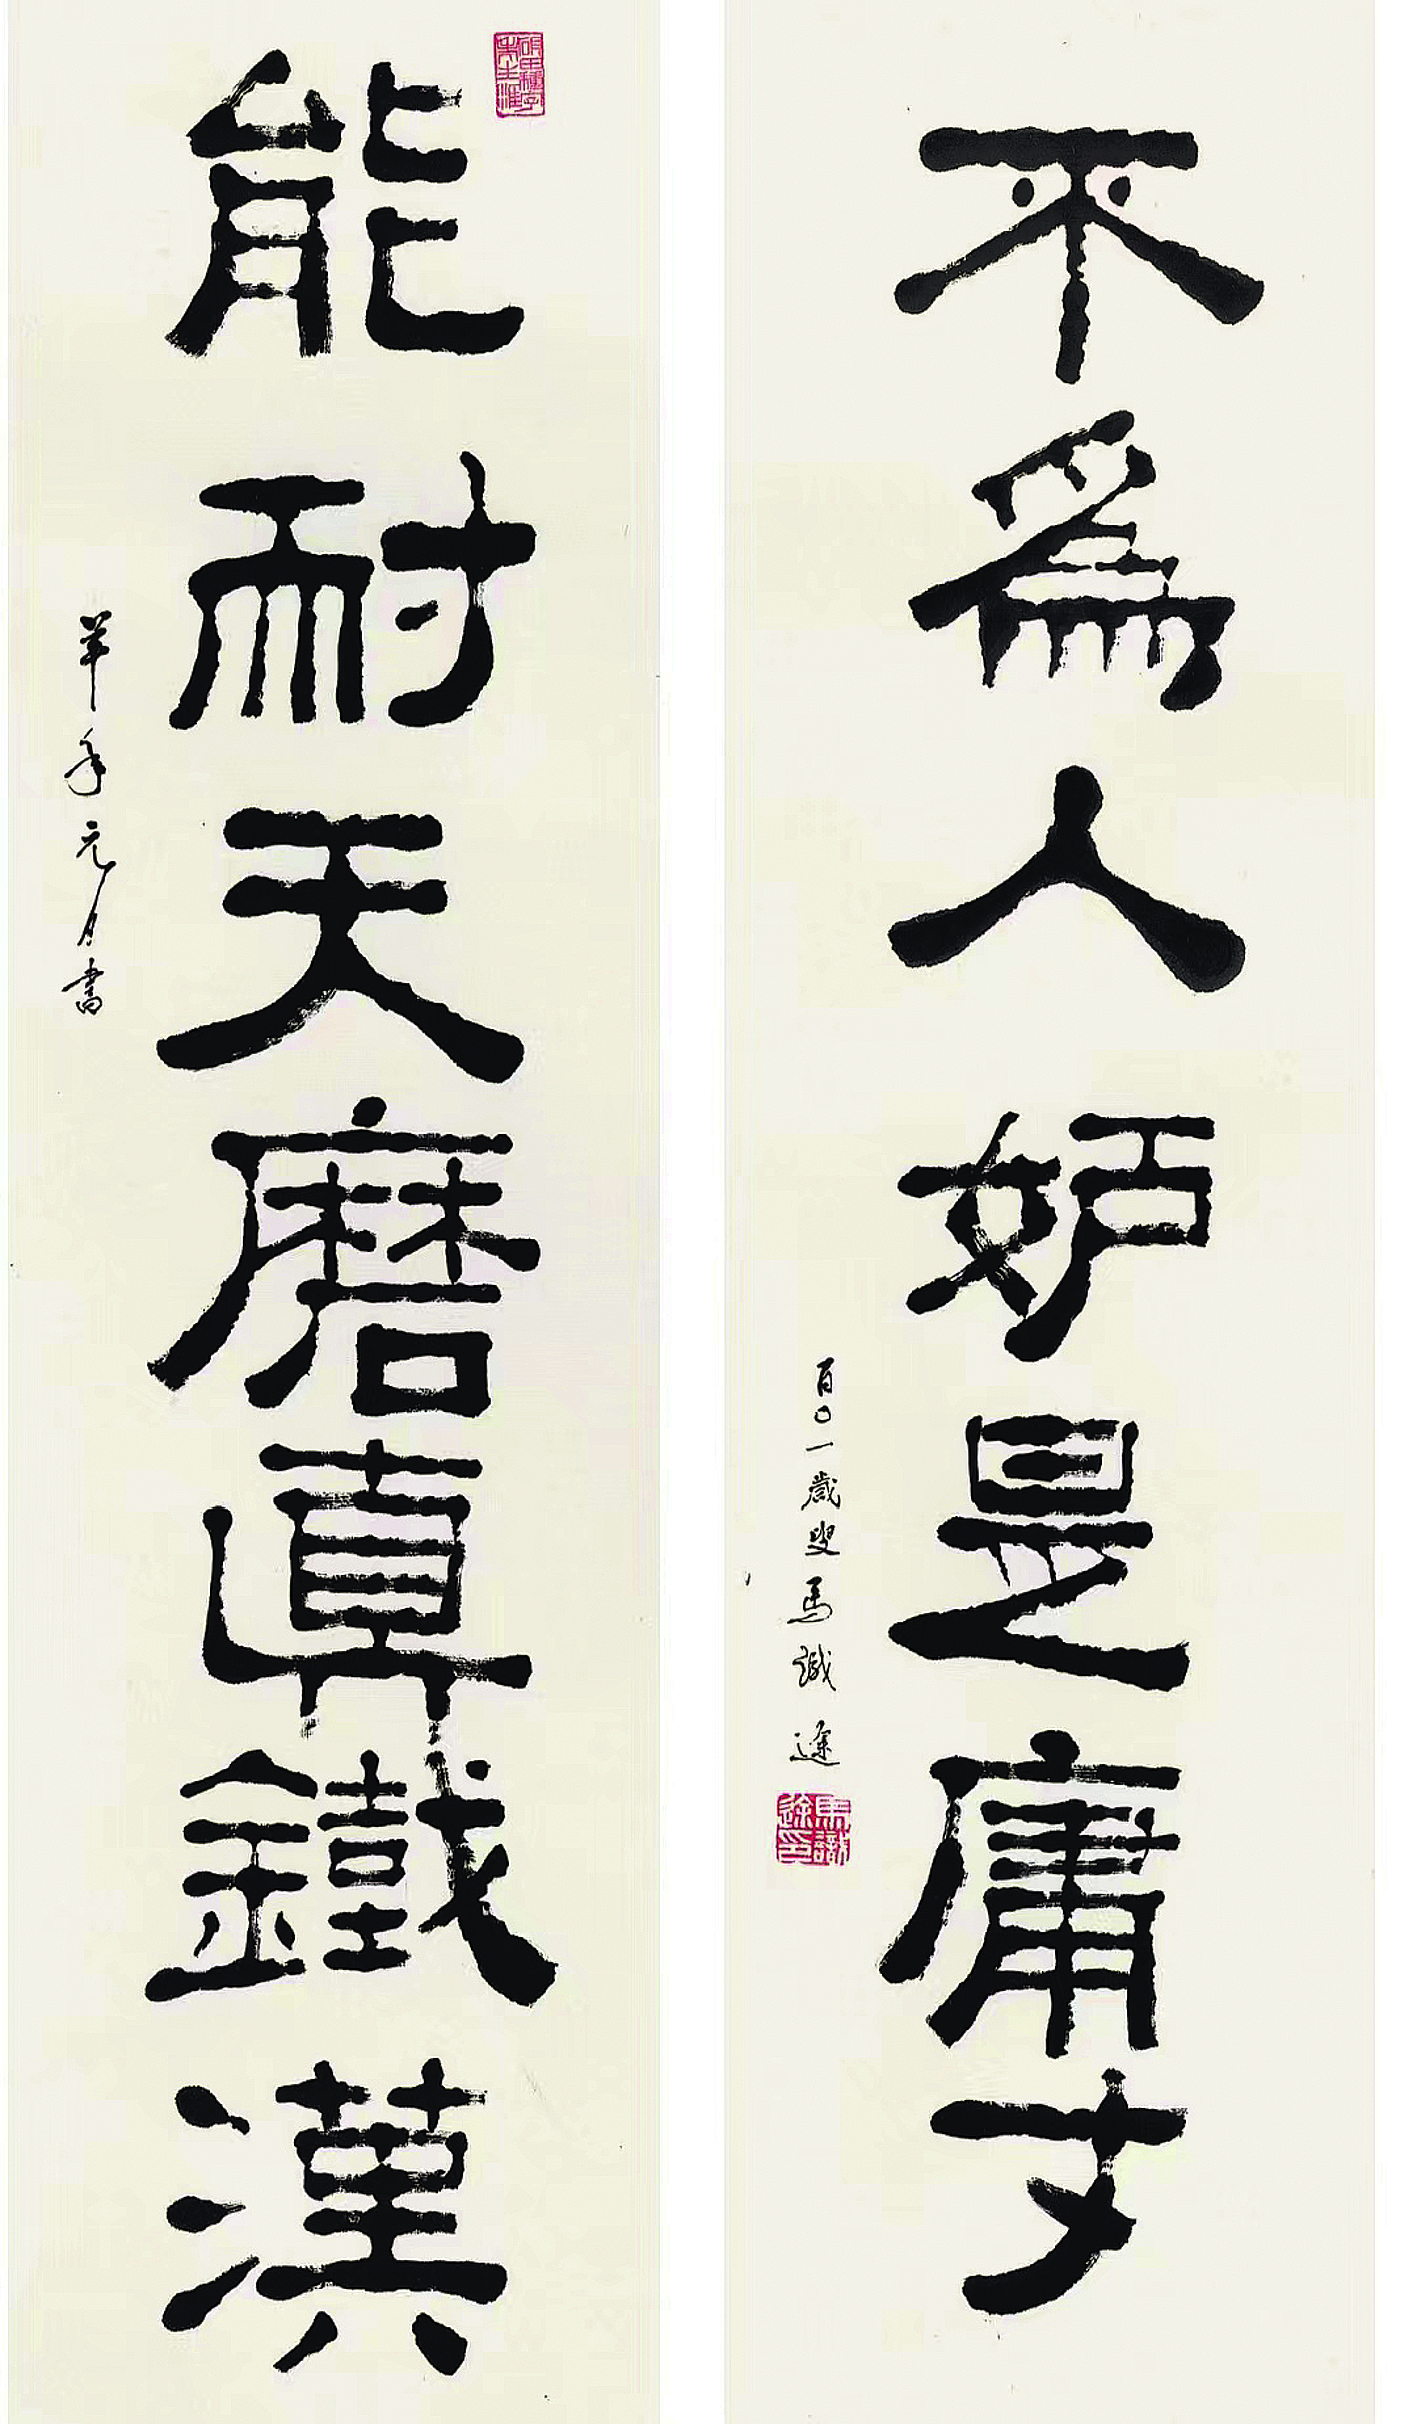 不爲人妒是庸才
百〇一歲叟馬識途
馬識途印
能耐天磨真鐵漢
羊年元月書